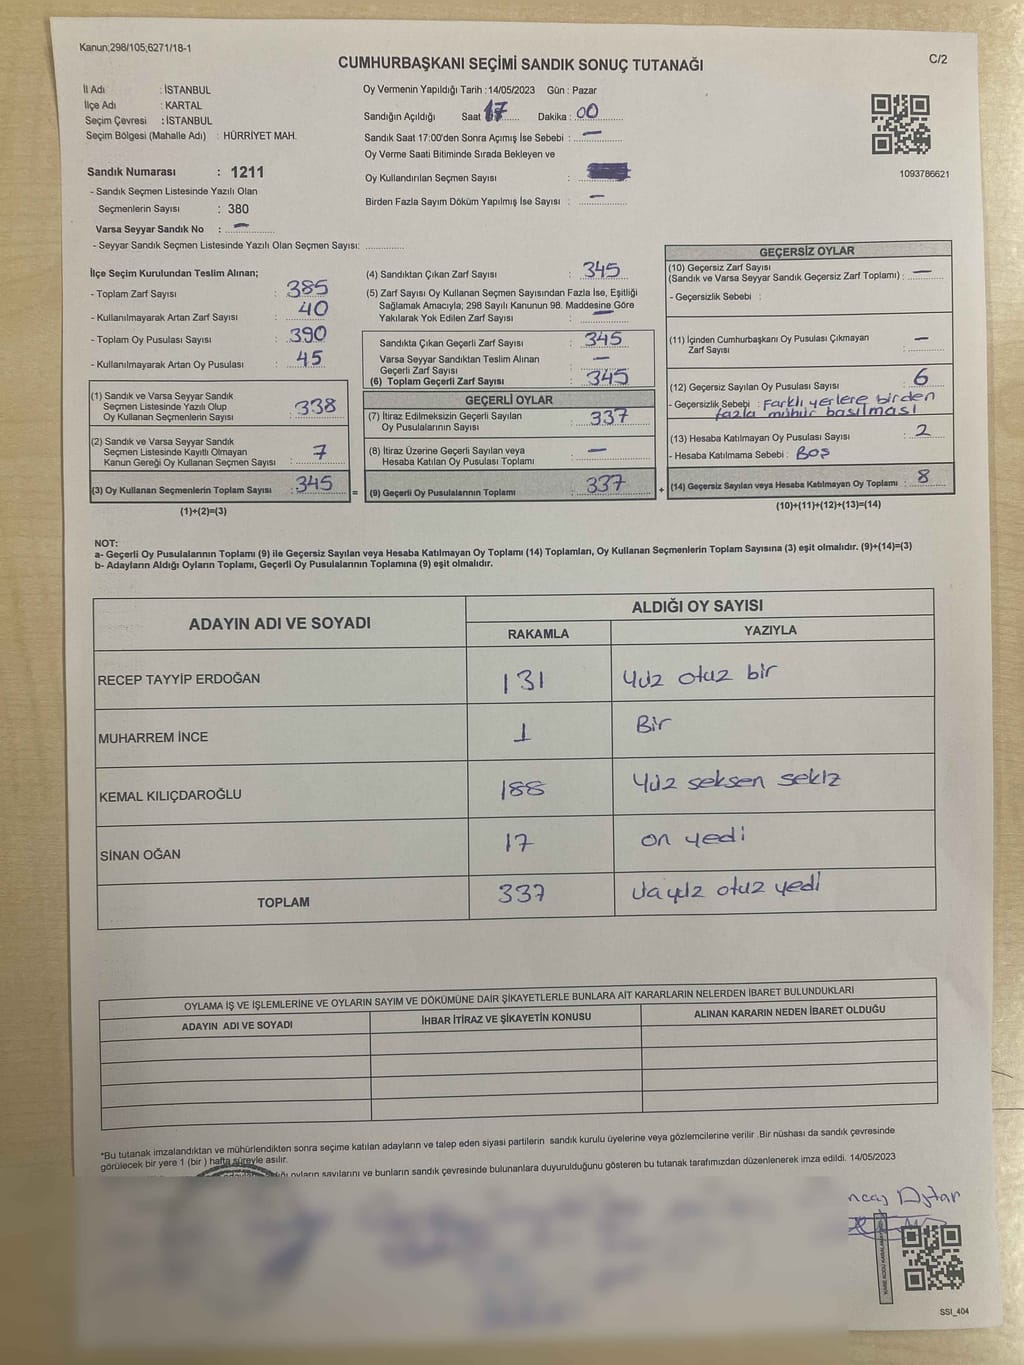 Kanun;298/105;6271/18-1
C/2
CUMHURBAŞKANI SEÇİMİ SANDIK SONUÇ TUTANAĞI
İl Adı : İSTANBUL
İlçe Adı : KARTAL
Seçim Çevresi : İSTANBUL
Seçim Bölgesi (Mahalle Adı) : HÜRRİYET MAH.
Sandık Numarası : 1211
- Sandık Seçmen Listesinde Yazılı Olan
Seçmenlerin Sayısı : 380
Varsa Seyyar Sandık No : —
- Seyyar Sandık Seçmen Listesinde Yazılı Olan Seçmen Sayısı: ............
Oy Vermenin Yapıldığı Tarih :14/05/2023 Gün : Pazar
Sandığın Açıldığı Saat 17 Dakika : 00
Sandık Saat 17:00'den Sonra Açımış İse Sebebi : —
Oy Verme Saati Bitiminde Sırada Bekleyen ve
Oy Kullandırılan Seçmen Sayısı :
Birden Fazla Sayım Döküm Yapılmış İse Sayısı : —
1093786621
İlçe Seçim Kurulundan Teslim Alınan;
- Toplam Zarf Sayısı : 385
- Kullanılmayarak Artan Zarf Sayısı : 40
- Toplam Oy Pusulası Sayısı : 390
- Kullanılmayarak Artan Oy Pusulası : 45
(1) Sandık ve Varsa Seyyar Sandık
Seçmen Listesinde Yazılı Olup
Oy Kullanan Seçmenlerin Sayısı : 338
(2) Sandık ve Varsa Seyyar Sandık
Seçmen Listesinde Kayıtlı Olmayan
Kanun Gereği Oy Kullanan Seçmen Sayısı : 7
(3) Oy Kullanan Seçmenlerin Toplam Sayısı : 345 =
(1)+(2)=(3)
(4) Sandıktan Çıkan Zarf Sayısı : 345
(5) Zarf Sayısı Oy Kullanan Seçmen Sayısından Fazla İse, Eşitliği
Sağlamak Amacıyla; 298 Sayılı Kanunun 98. Maddesine Göre
Yakılarak Yok Edilen Zarf Sayısı : —
Sandıkta Çıkan Geçerli Zarf Sayısı : 345
Varsa Seyyar Sandıktan Teslim Alınan
Geçerli Zarf Sayısı : —
(6) Toplam Geçerli Zarf Sayısı : 345
GEÇERLİ OYLAR
(7) İtiraz Edilmeksizin Geçerli Sayılan
Oy Pusulalarının Sayısı : 337
(8) İtiraz Üzerine Geçerli Sayılan veya
Hesaba Katılan Oy Pusulası Toplamı : —
(9) Geçerli Oy Pusulalarının Toplamı : 337 +
GEÇERSİZ OYLAR
(10) Geçersiz Zarf Sayısı
(Sandık ve Varsa Seyyar Sandık Geçersiz Zarf Toplamı) : —
- Geçersizlik Sebebi :
(11) İçinden Cumhurbaşkanı Oy Pusulası Çıkmayan
Zarf Sayısı : —
(12) Geçersiz Sayılan Oy Pusulası Sayısı : 6
- Geçersizlik Sebebi : Farklı yerlere birden
fazla mühür basılması
(13) Hesaba Katılmayan Oy Pusulası Sayısı : 2
- Hesaba Katılmama Sebebi : Boş
(14) Geçersiz Sayılan veya Hesaba Katılmayan Oy Toplamı : 8
(10)+(11)+(12)+(13)=(14)
NOT:
a- Geçerli Oy Pusulalarının Toplamı (9) ile Geçersiz Sayılan veya Hesaba Katılmayan Oy Toplamı (14) Toplamları, Oy Kullanan Seçmenlerin Toplam Sayısına (3) eşit olmalıdır. (9)+(14)=(3)
b- Adayların Aldığı Oyların Toplamı, Geçerli Oy Pusulalarının Toplamına (9) eşit olmalıdır.
ADAYIN ADI VE SOYADI
ALDIĞI OY SAYISI
RAKAMLA YAZIYLA
RECEP TAYYİP ERDOĞAN 131 Yüz otuz bir
MUHARREM İNCE 1 Bir
KEMAL KILIÇDAROĞLU 188 Yüz seksen sekiz
SİNAN OĞAN 17 on yedi
TOPLAM 337 üçyüz otuz yedi
OYLAMA İŞ VE İŞLEMLERİNE VE OYLARIN SAYIM VE DÖKÜMÜNE DAİR ŞİKAYETLERLE BUNLARA AİT KARARLARIN NELERDEN İBARET BULUNDUKLARI
ADAYIN ADI VE SOYADI İHBAR İTİRAZ VE ŞİKAYETİN KONUSU ALINAN KARARIN NEDEN İBARET OLDUĞU
*Bu tutanak imzalandıktan ve mühürlendikten sonra seçime katılan adayların ve talep eden siyasi partilerin sandık kurulu üyelerine veya gözlemcilerine verilir .Bir nüshası da sandık çevresinde
görülecek bir yere 1 (bir ) hafta süreyle asılır.
oyların sayılarını ve bunların sandık çevresinde bulunanlara duyurulduğunu gösteren bu tutanak tarafımızdan düzenlenerek imza edildi. 14/05/2023
SSI_404